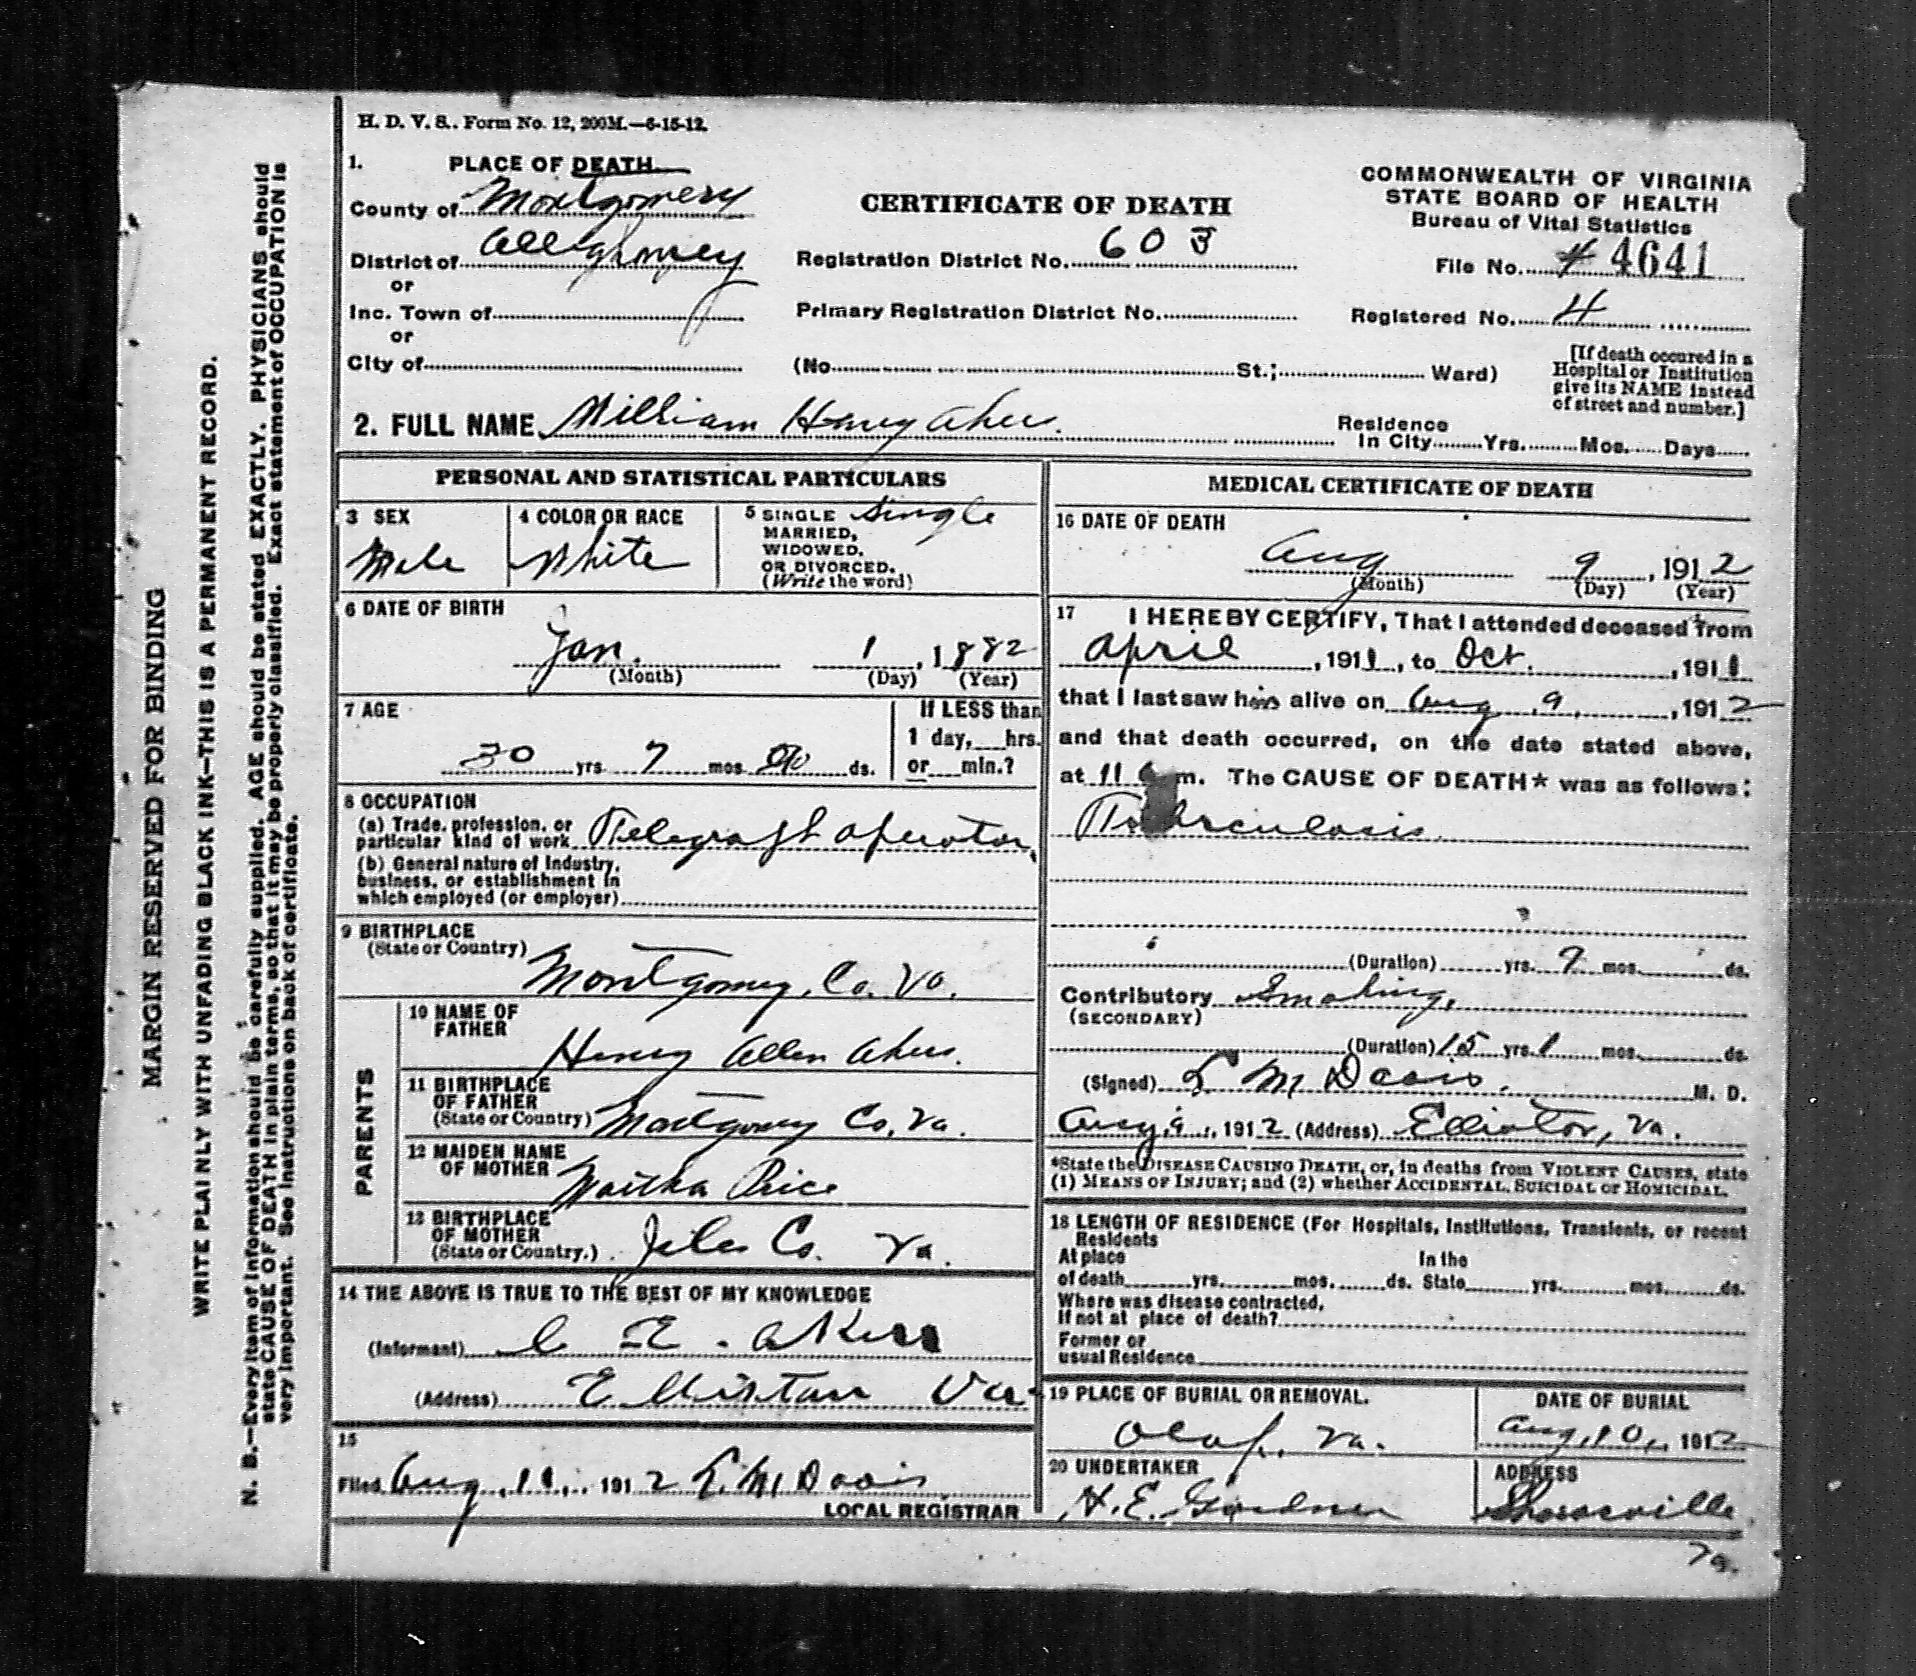 H. D. V. S.. Form No. 12, 200M.—6-15-12.
1. PLACE OF DEATH
County of Montgomery
District of Alleghaney
or
Inc. Town of
or
City of
CERTIFICATE OF DEATH
Registration District No. 603
Primary Registration District No.
(No. St.; Ward)
COMMONWEALTH OF VIRGINIA
STATE BOARD OF HEALTH
Bureau of Vital Statistics
File No. 4641
Registered No. 4
[If death occured in a
Hospital or Institution
give its NAME instead
of street and number.]
2. FULL NAME William Henry Akers.
Residence
In City Yrs. Mos. Days
PERSONAL AND STATISTICAL PARTICULARS
3 SEX
Male
4 COLOR OR RACE
White
5 SINGLE
MARRIED,
WIDOWED.
OR DIVORCED.
(Write the word)
Single
6 DATE OF BIRTH
Jan. 1, 1882
(Month) (Day) (Year)
7 AGE
30 yrs 7 mos ds.
If LESS than
1 day, hrs.
or min.?
8 OCCUPATION
(a) Trade, profession, or
particular kind of work Telegraft operator,
(b) General nature of Industry,
business, or establishment in
which employed (or employer)
9 BIRTHPLACE
(State or Country)
Montgomery, Co. Va.
PARENTS
10 NAME OF
FATHER
Henry Allen Akers.
11 BIRTHPLACE
OF FATHER
(State or Country) Montgomery Co, Va.
12 MAIDEN NAME
OF MOTHER Martha Price
13 BIRTHPLACE
OF MOTHER
(State or Country.) Jiles Co. Va.
14 THE ABOVE IS TRUE TO THE BEST OF MY KNOWLEDGE
(Informant) C E. Akers
(Address) Elliston Va
15
Filed Aug. 11, 1912 L. M. Davis
LOCAL REGISTRAR
MEDICAL CERTIFICATE OF DEATH
16 DATE OF DEATH
Aug 9, 1912
(Month) (Day) (Year)
17 I HEREBY CERTIFY, That I attended deceased from
April, 1911, to Oct., 1911
that I last saw him alive on Aug 9, 1912
and that death occurred, on the date stated above,
at 11 m. The CAUSE OF DEATH* was as follows:
Tuberculosis.
(Duration) yrs. 9 mos. ds.
Contributory Smoking,
(SECONDARY)
(Duration) 15 yrs. 1 mos. ds.
(Signed) L M Davis. M. D.
Aug. 9, 1912 (Address) Elliston, Va.
*State the DISEASE CAUSING DEATH, or, in deaths from VIOLENT CAUSES, state
(1) MEANS OF INJURY; and (2) whether ACCIDENTAL, SUICIDAL or HOMICIDAL.
18 LENGTH OF RESIDENCE (For Hospitals, Institutions, Transients, or recent
Residents
At place In the
of death yrs. mos. ds. State yrs. mos. ds.
Where was disease contracted,
If not at place of death?
Former or
usual Residence
19 PLACE OF BURIAL OR REMOVAL.
Olaf. Va.
DATE OF BURIAL
Aug, 10, 1912
20 UNDERTAKER
H. E. Gardner
ADDRESS
Shawsville
Va.
MARGIN RESERVED FOR BINDING
WRITE PLAINLY WITH UNFADING BLACK INK—THIS IS A PERMANENT RECORD.
N. B.—Every item of information should be carefully supplied. AGE should be stated EXACTLY. PHYSICIANS should
state CAUSE OF DEATH in plain terms, so that it may be properly classified. Exact statement of OCCUPATION is
very important. See instructions on back of certificate.